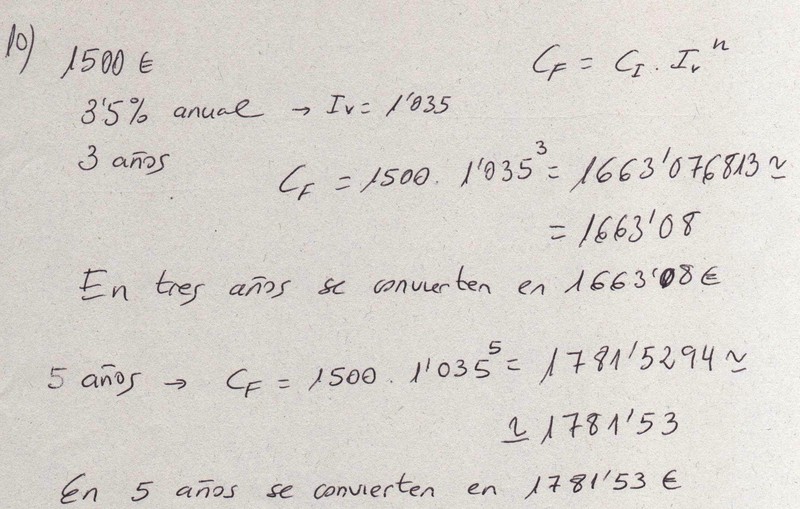 10)
1500 €
C_F = C_I . I_v^n
3'5% anual → I_v = 1'035
3 años
C_F = 1500 . 1'035^3 = 1663'076813 ≃
= 1663'08
En tres años se convierten en 1663'08 €
5 años → C_F = 1500 . 1'035^5 = 1781'5294 ≃
≃ 1781'53
En 5 años se convierten en 1781'53 €